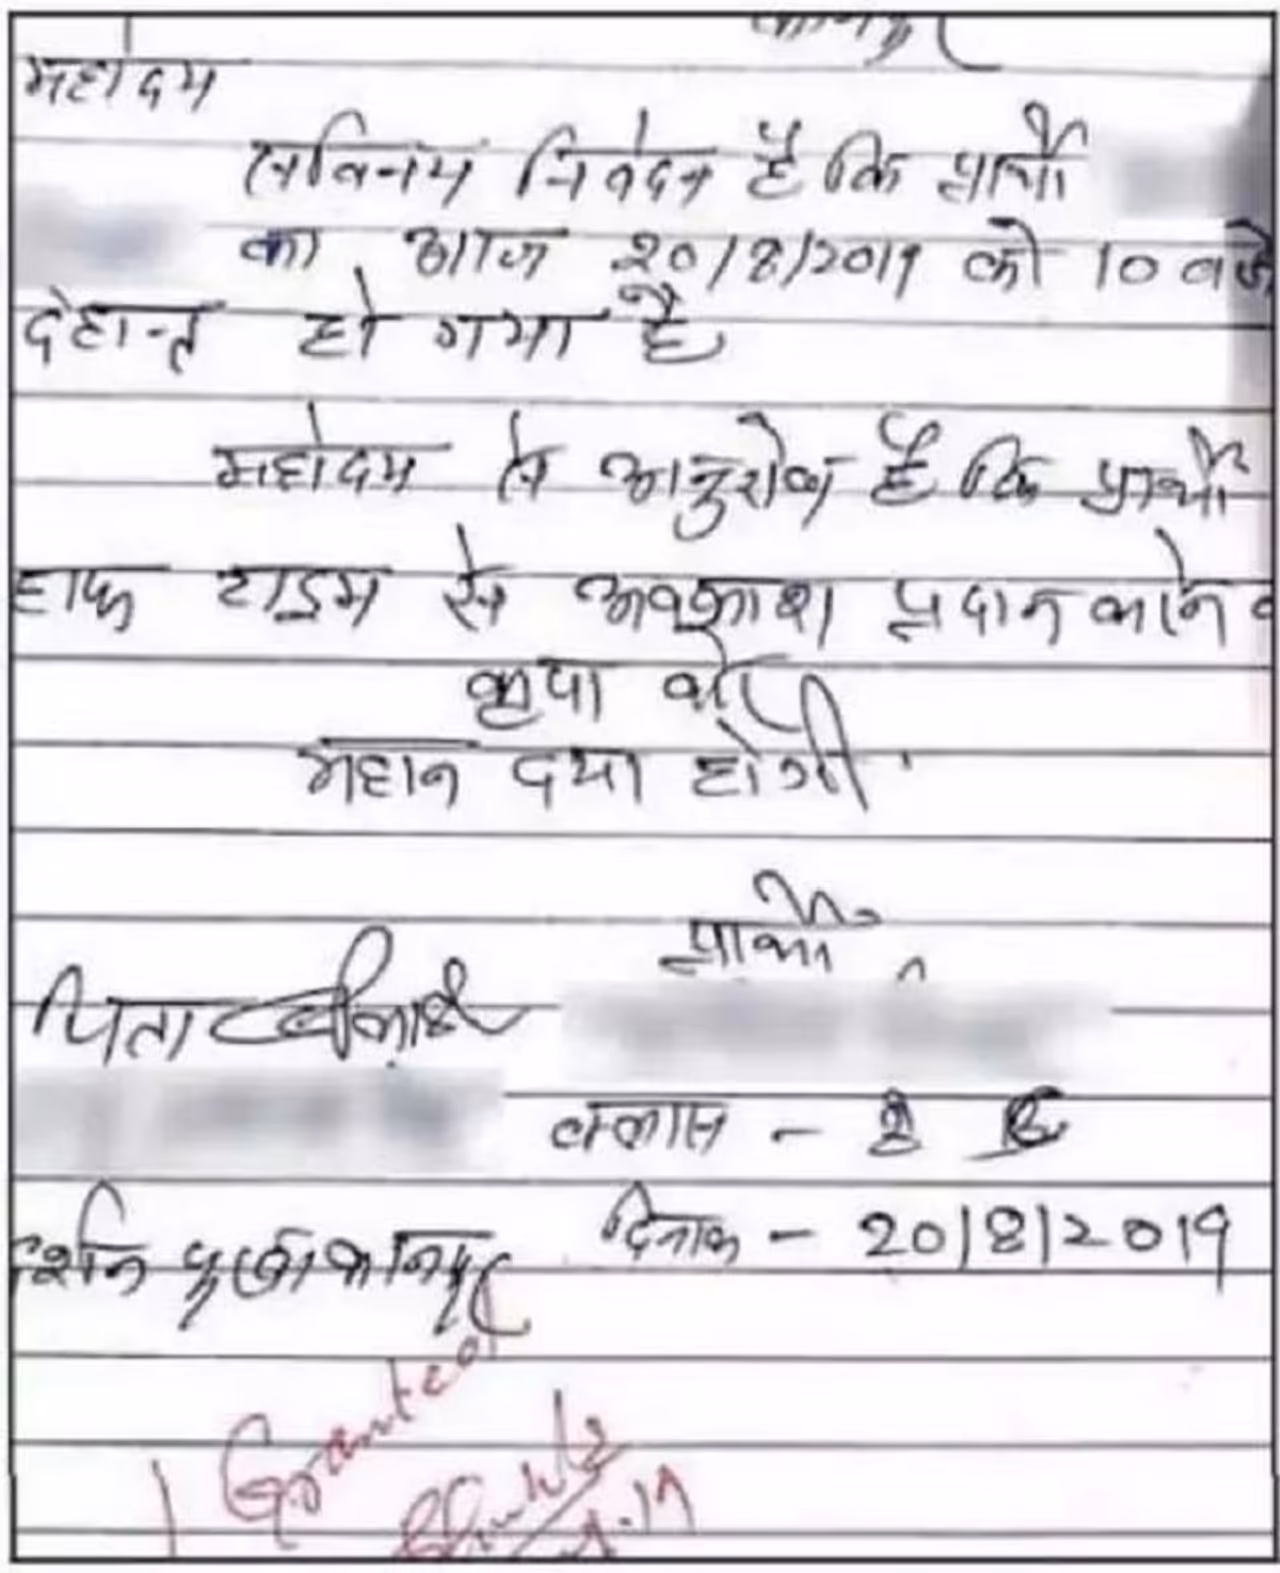 महोदय
सविनय निवेदन है कि प्रार्थी
का आज 20/8/2019 को 10 बजे
देहान्त हो गया है
महोदय से अनुरोध है कि प्रार्थी
हाफ टाइम से अवकाश प्रदान करने
कृपा करें
महान दया होगी
प्रार्थी
पिता
क्लास - 8
दिनांक - 20/8/2019
Granted